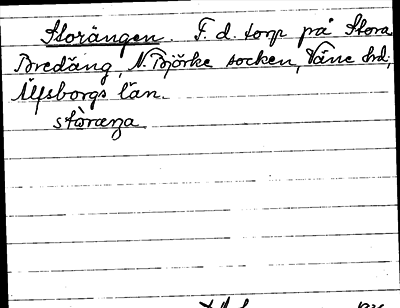 Storängen. F. d. torp på Stora
Bredäng, N. Björke socken, Väne hd,
Älfsborgs län.
stòraŋa